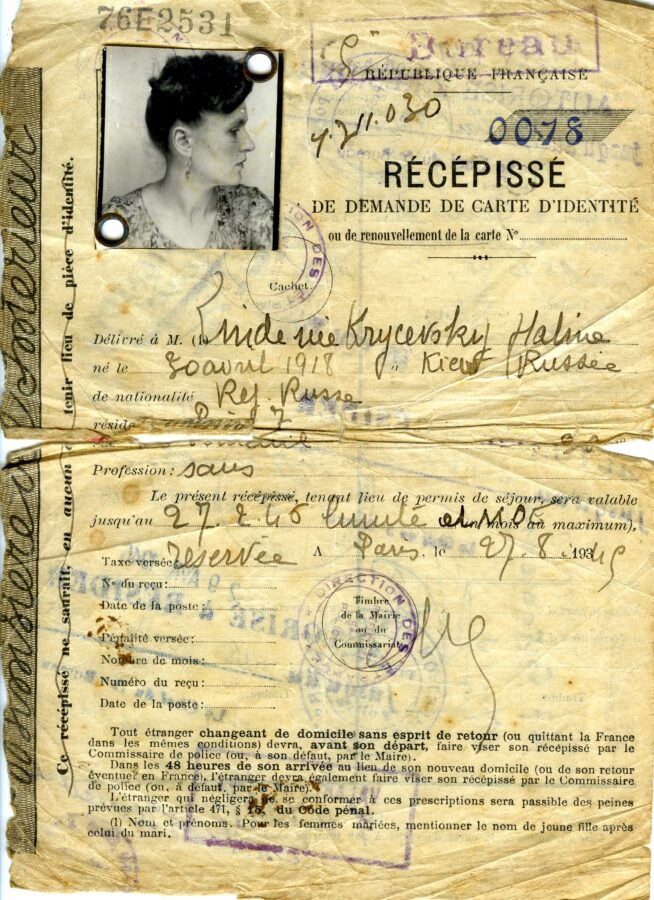 76E2531
Bureau
RÉPUBLIQUE FRANÇAISE
0078
RÉCÉPISSÉ
DE DEMANDE DE CARTE D'IDENTITÉ
ou de renouvellement de la carte N°
Cachet.
Délivré à M. (1) Linde née Krycevsky Haline
né le 30 avril 1918 à Kiew Russie
de nationalité Ref. Russe
réside Paris 7
Profession : sans
Le présent récépissé, tenant lieu de permis de séjour, sera valable
jusqu'au 27.2.46 (mois au maximum),
Taxe versée réservée A Paris, le 27.8.1945
N° du reçu :
Date de la poste :
Pénalité versée :
Nombre de mois :
Numéro du reçu :
Date de la poste :
DIRECTION DES
Timbre
de la Mairie
ou du
Commissariat
Tout étranger changeant de domicile sans esprit de retour (ou quittant la France
dans les mêmes conditions) devra, avant son départ, faire viser son récépissé par le
Commissaire de police (ou, à son défaut, par le Maire).
Dans les 48 heures de son arrivée au lieu de son nouveau domicile (ou de son retour
éventuel en France), l'étranger devra également faire viser son récépissé par le Commissaire
de police (ou, à défaut, par le Maire).
L'étranger qui négligera de se conformer à ces prescriptions sera passible des peines
prévues par l'article 471, § 15, du Code pénal.
(1) Nom et prénoms. Pour les femmes mariées, mentionner le nom de jeune fille après
celui du mari.
Ce récépissé ne saurait, en aucun cas, tenir lieu de pièce d'identité.